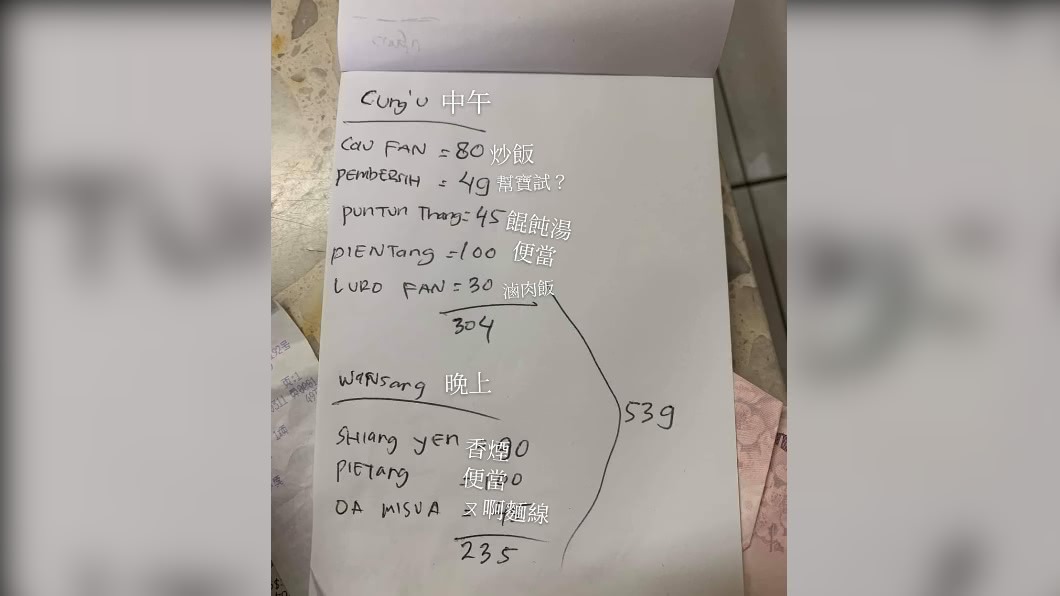 Cung'u 中午
CAU FAN = 80 炒飯
PEMBERSIH = 49 幫寶試？
PUNTUN Thang = 45 餛飩湯
PIENTang = 100 便當
LURO FAN = 30 滷肉飯
304
WANSang 晚上
539
SHIang YEN 90 香煙
PIETang = 100 便當
OA MISUA = ㄡ啊麵線
235